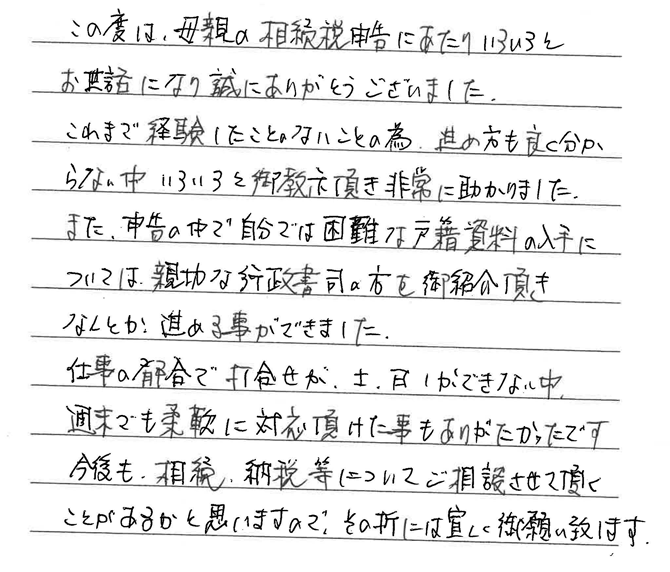 この度は、母親の相続税申告にあたりいろいろと
お世話になり誠にありがとうございました。
これまで経験したことのないことの為、進め方も良く分か
らない中いろいろと御教示頂き非常に助かりました。
また、申告の中で自分では困難な戸籍資料の入手に
ついては、親切な行政書司の方を御紹介頂き
なんとか、進める事ができました。
仕事の都合で打合せが、土、日しかできない中、
週末でも柔軟に対応頂けた事もありがたかったです
今後も、相続、納税等についてご相談させて頂く
ことがあるかと思いますので、その折には宜しく御願い致します。